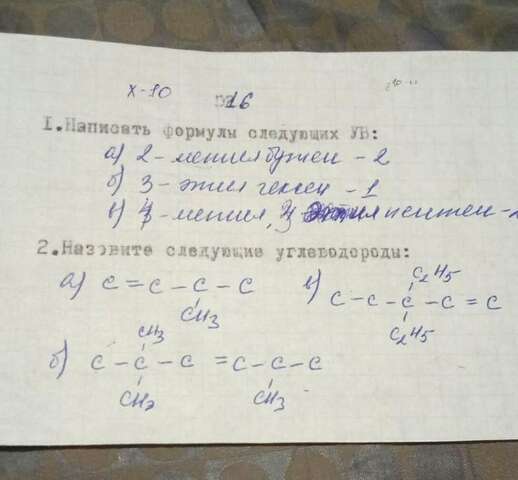 X-10
№16
1. Написать формулы следующих УВ:
а) 2-метилбутен-2
б) 3-этилгексен-1
в) 4-метил, пентен-2
2. Назовите следующие углеводороды:
а) C = C - C - C
CH3
б) C - C - C = C - C - C
CH3
CH3
CH3
в) C - C - C - C = C
C2H5
C2H5